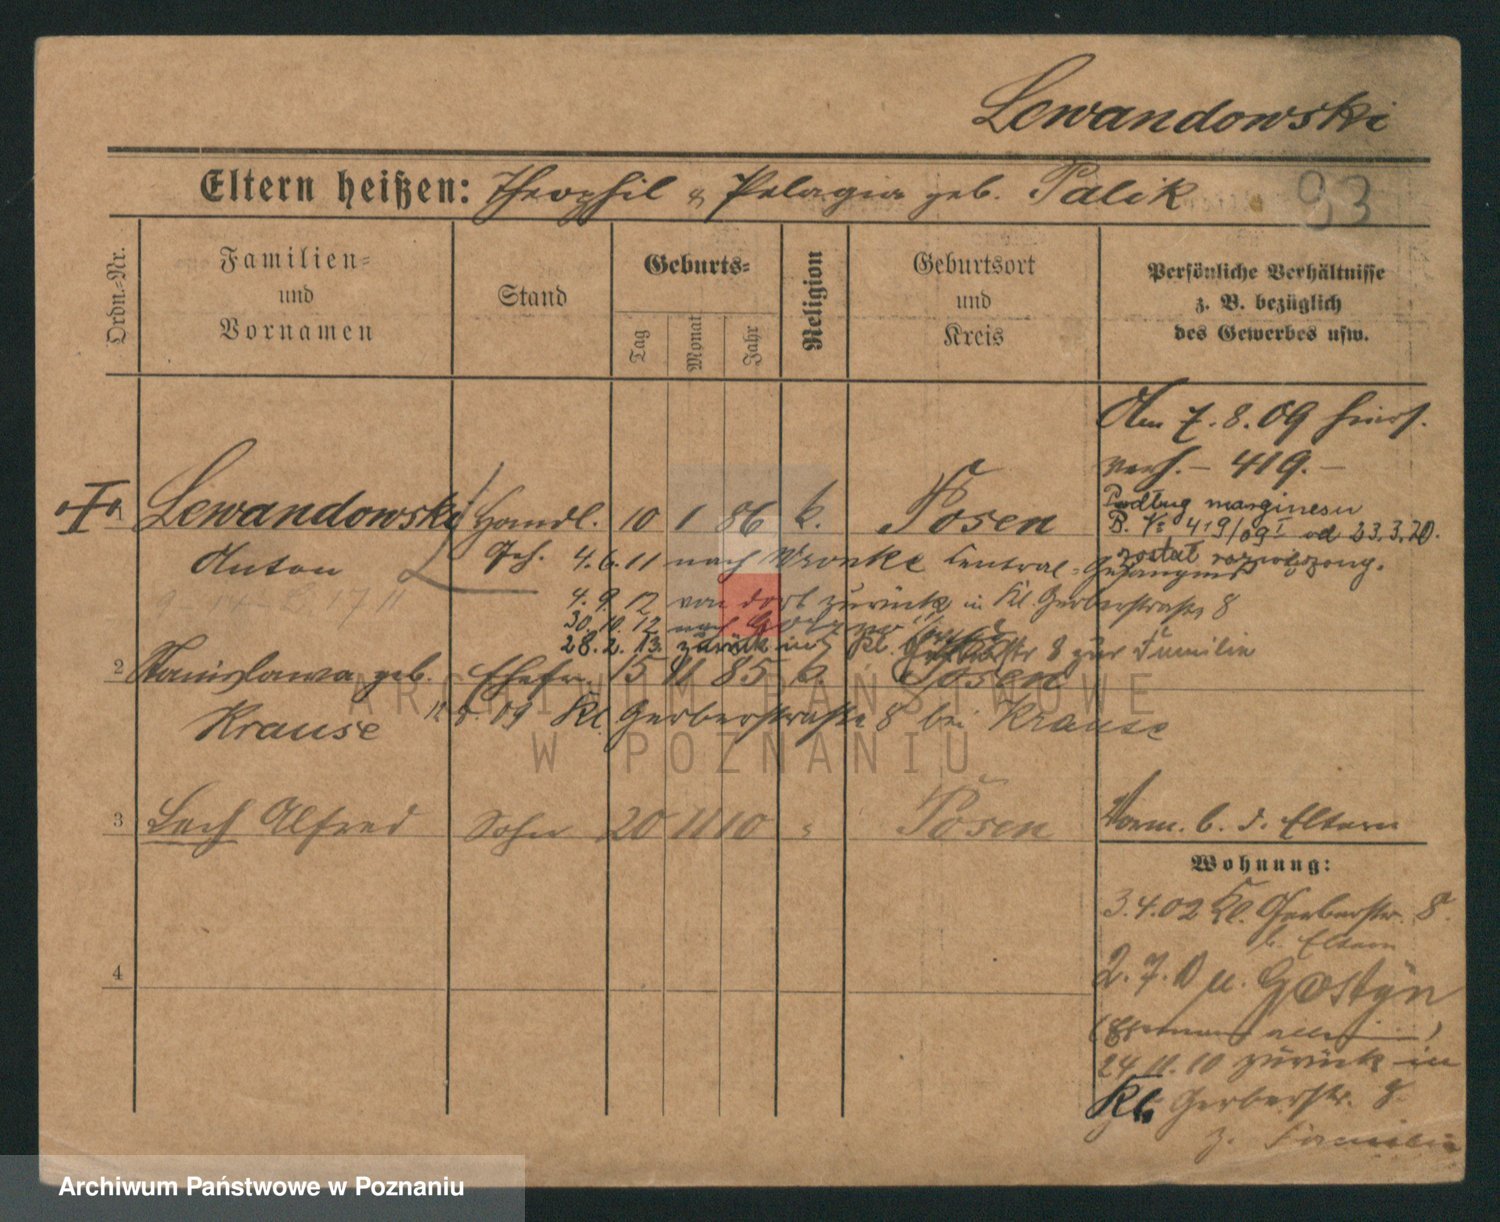 Lewandowski
Eltern heißen: Theophil & Pelagia geb. Palik
83
Ordn.-Nr.
Familien-
und
Vornamen
Stand
Geburts-
Tag
Monat
Jahr
Religion
Geburtsort
und
Kreis
Persönliche Verhältnisse
z. B. bezüglich
des Gewerbes usw.
Am 7.8.09 hiers.
verh. - 419. -
Podług marginesu
B. № 419/09 I od 23.3.20.
został rozwiedziony.
1 Lewandowski Handl. 10 1 86 k. Posen
Anton Geh. 4.6.11 nach Wronke Central-Gefängniss
4.9.12 von dort zurück in Kl. Gerberstraße 8
30.10.12 nach
28.2.13. zurück in Kl. 8 zur Familie
2 Stanislawa geb. Ehefr. 15 11 85 k. Posen
Krause 12.8.09 Kl. Gerberstraße 8 bei Krause
3 Lech Alfred Sohn 20 11 10 " Posen
4
Vorm. b. d. Eltern
Wohnung:
3.4.02 Kl. Gerberstr. 8.
b. Eltern
2.7.10 n. Gostyn
(Ehemann allein)
24.11.10 zurück in
Kl. Gerberstr. 8
z. Familie
ARCHIWUM PAŃSTWOWE
W POZNANIU
Archiwum Państwowe w Poznaniu